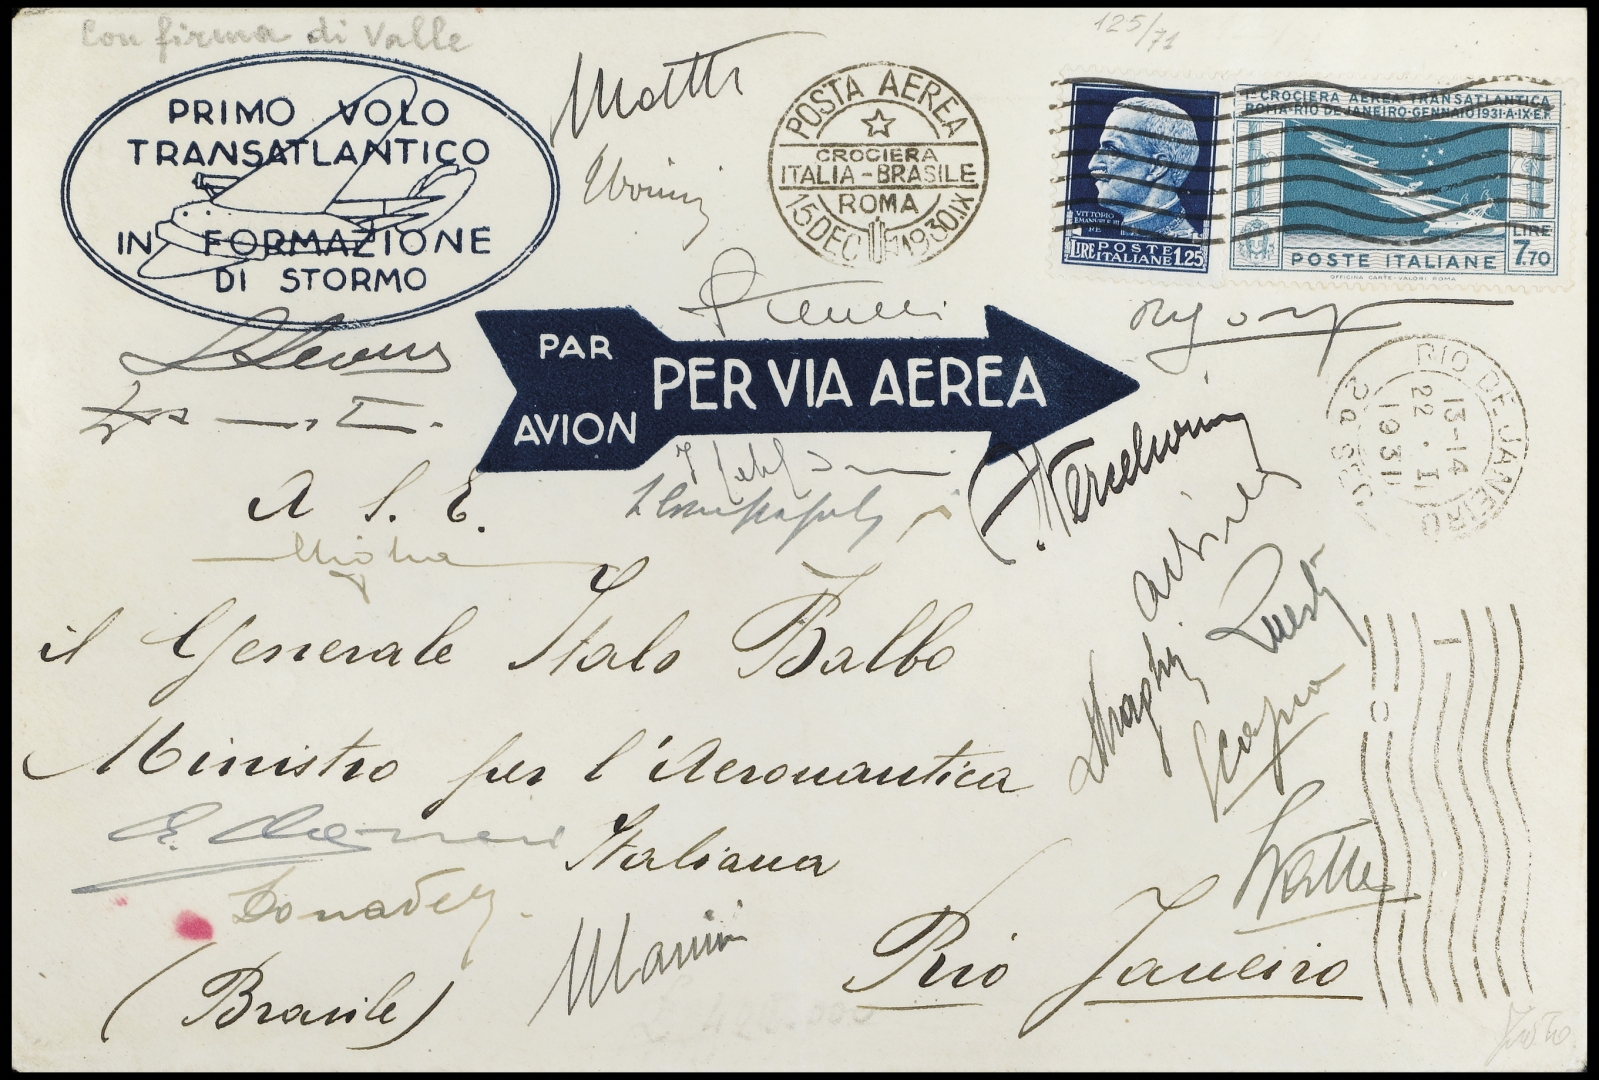 Con firma di Valle
125/71
PRIMO VOLO
TRANSATLANTICO
IN FORMAZIONE
DI STORMO
POSTA AEREA
CROCIERA
ITALIA-BRASILE
ROMA
15 DEC 1930.IX
1ª CROCIERA AEREA TRANSATLANTICA
ROMA-RIO DE JANEIRO-GENNAIO 1931-A·IX·E.F.
VITTORIO
EMANUELE III
RE
LIRE POSTE ITALIANE 1.25
LIRE
7.70
POSTE ITALIANE
OFFICINA CARTE-VALORI ROMA
PAR
AVION
PER VIA AEREA
RIO DE JANEIRO
13-14
22.I
1931
2ª SEC
A S. E.
il Generale Italo Balbo
Ministro per l'Aeronautica
Italiana
Rio Janeiro
(Brasile)
Vercelloni
Draghi
Questa
Scapua
Valle
Donadelli
Marini
£ 425.000